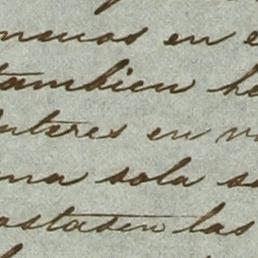 menos en e
tambien ha
Interes en
una sola se
ostasen las